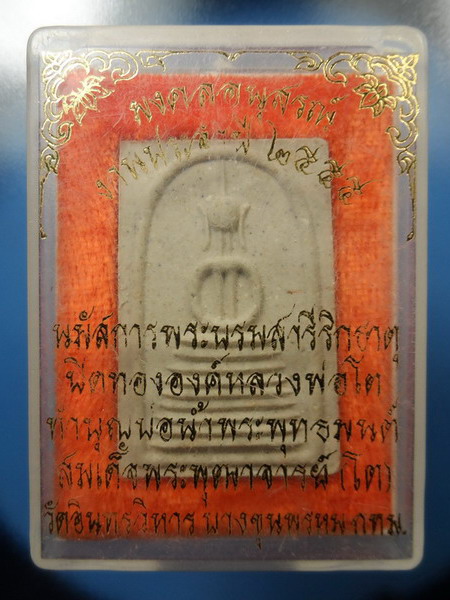 มงคลอนุสรณ์
งานประจำปี ๒๕๕๔
นมัสการพระบรมสารีริกธาตุ
ปิดทององค์หลวงพ่อโต
ทำบุญบ่อน้ำพระพุทธมนต์
สมเด็จพระพุฒาจารย์ (โต)
วัดอินทรวิหาร บางขุนพรหม กทม.